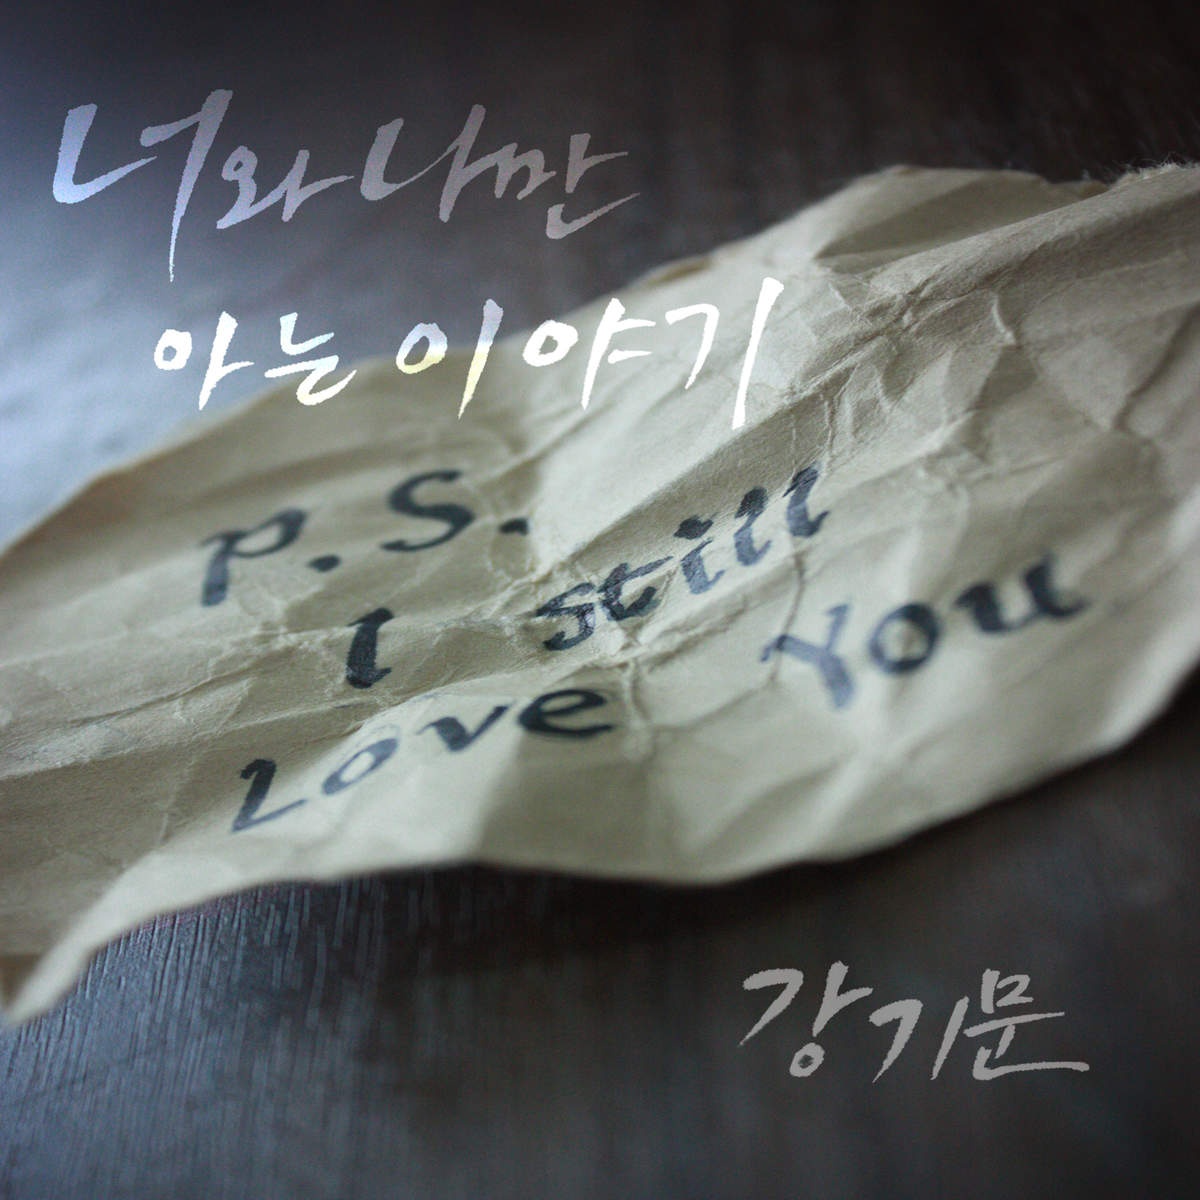 너와 나만
아는 이야기
P.S.
I still
Love You
강기문